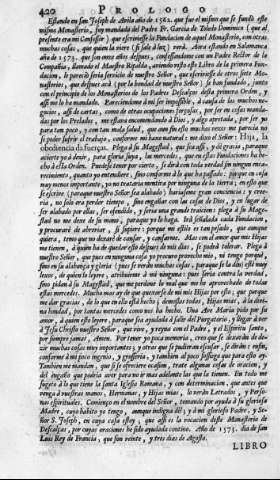 420 PROLOGO
Estando en san Joseph de Avila año de 1562. que fue el mismo que se fundò este
mismo Monasterio, fuy mandada del Padre Fr. Garcia de Toledo Dominico (que al
presente era mi Confessor) que escriviesse la Fundacion de aquel Monasterio, con otras
muchas cosas, que quien la viere (si sale à luz) verà. Aora estando en Salamanca
año de 1573. que son onze años despues, confessandome con un Padre Rector de la
Compañia, llamado el Maestro Ripalda, aviendo visto este Libro de la primera Fun-
dacion, le pareciò seria servicio de nuestro Señor, que escriviesse de otros siete Mo-
nasterios, que despues acà (por la bondad de nuestro Señor) se han fundado, junto
con el principio de los Monasterios de los Padres Descalços desta primera Orden, y
assi me lo ha mandado. Pareciendome à mi ser impossible, à causa de los muchos ne-
gocios, assi de cartas, como de otras ocupaciones forçosas, por ser en cosas manda-
das por los Prelados, me estava encomendando à Dios, y algo apretada, por ser yo
para tan poco, y con tan mala salud, que aun sin esto muchas vezes me parecia no
se poder sufrir el trabajo, conforme mi baxo natural: me dixo el Señor: Hija, la
obediencia dà fuerças. Plega à su Magestad, que sea assi, y dè gracia, para que
acierte yo à dezir, para gloria suya, las mercedes, que en estas Fundaciones ha he-
cho à esta Orden. Puedese tener por cierto, que se dirà con toda verdad sin ningun enca-
recimiento, quanto yo entendiere, sino conforme à lo que ha passado: porque en cosa
muy menos importante, yo no trataria mentira por ninguna de la tierra; en esto que
se escrive (para que nuestro Señor sea alabado) hariaseme gran conciencia, y cree-
ria, no solo era perder tiempo, sino engañar con las cosas de Dios, y en lugar de
ser alabado por ellas, ser ofendido, y seria una grande traicion: plega à su Mages-
tad no me dexe de su mano, para que yo la haga. Irà señalada cada Fundacion,
y procurarè de abreviar, si supiere: porque mi estilo es tan pesado, que aunque
quiera, temo que no dexarè de cansar, y cansarme. Mas con el amor que mis Hijas
me tienen, à quien ha de quedar esto despues de mis dias, se podrà tolerar. Plega à
nuestro Señor, que pues en ninguna cosa yo procuro provecho mio, ni tengo porquè,
sino en su alabança y gloria (pues se veràn muchas cosas, para que se le den) estè muy
lexos, de quien lo leyere, atribuirme à mi ninguna: pues seria contra la verdad,
sino pidan à su Magestad, que me perdone lo mal que me he aprovechado de todas
estas mercedes. Mucho mas ay de que quexarse de mi mis Hijas por esto; que porque
me dar gracias, de lo que en ello està hecho; demoslas todas, Hijas mias, à la divi-
na bondad, por tantas mercedes como nos ha hecho. Una Ave Maria pido por su
amor, à quien esto leyere, para que sea ayuda à salir del Purgatorio, y llegar à ver
à Jesu Christo nuestro Señor, que vive, y reyna con el Padre, y el Espiritu Santo,
por siempre jamas. Amen. Por tener yo poca memoria, creo que se dexaràn de de-
zir muchas cosas muy importantes, y otras que se pudieran escusar, se diràn: en fin,
conforme à mi poco ingenio, y grosseria, y tambien al poco sossiego que para esto ay.
Tambien me mandan, que si se ofreciere ocasion, trate algunas cosas de oracion, y
del engaño que podria aver para no ir mas adelante las que la tienen. En todo me
sugeto à lo que tiene la santa Iglesia Romana, y con determinacion, que antes que
venga à vuestras manos, Hermanas, y Hijas mias, lo veràn Letrados, y Perso-
nas espirituales. Comienço en el nombre del Señor, tomando por ayuda à su gloriosa
Madre, cuyo habito yo tengo, aunque indigna dèl; y à mi glorioso Padre, y Se-
ñor S. Joseph, en cuya casa estoy, que assi es la vocacion deste Monasterio de
Descalças, por cuyas oraciones he sido ayudada continuo. Año de 1573. dia de san
Luis Rey de Francia, que son veinte, y tres dias de Agosto.
LIBRO